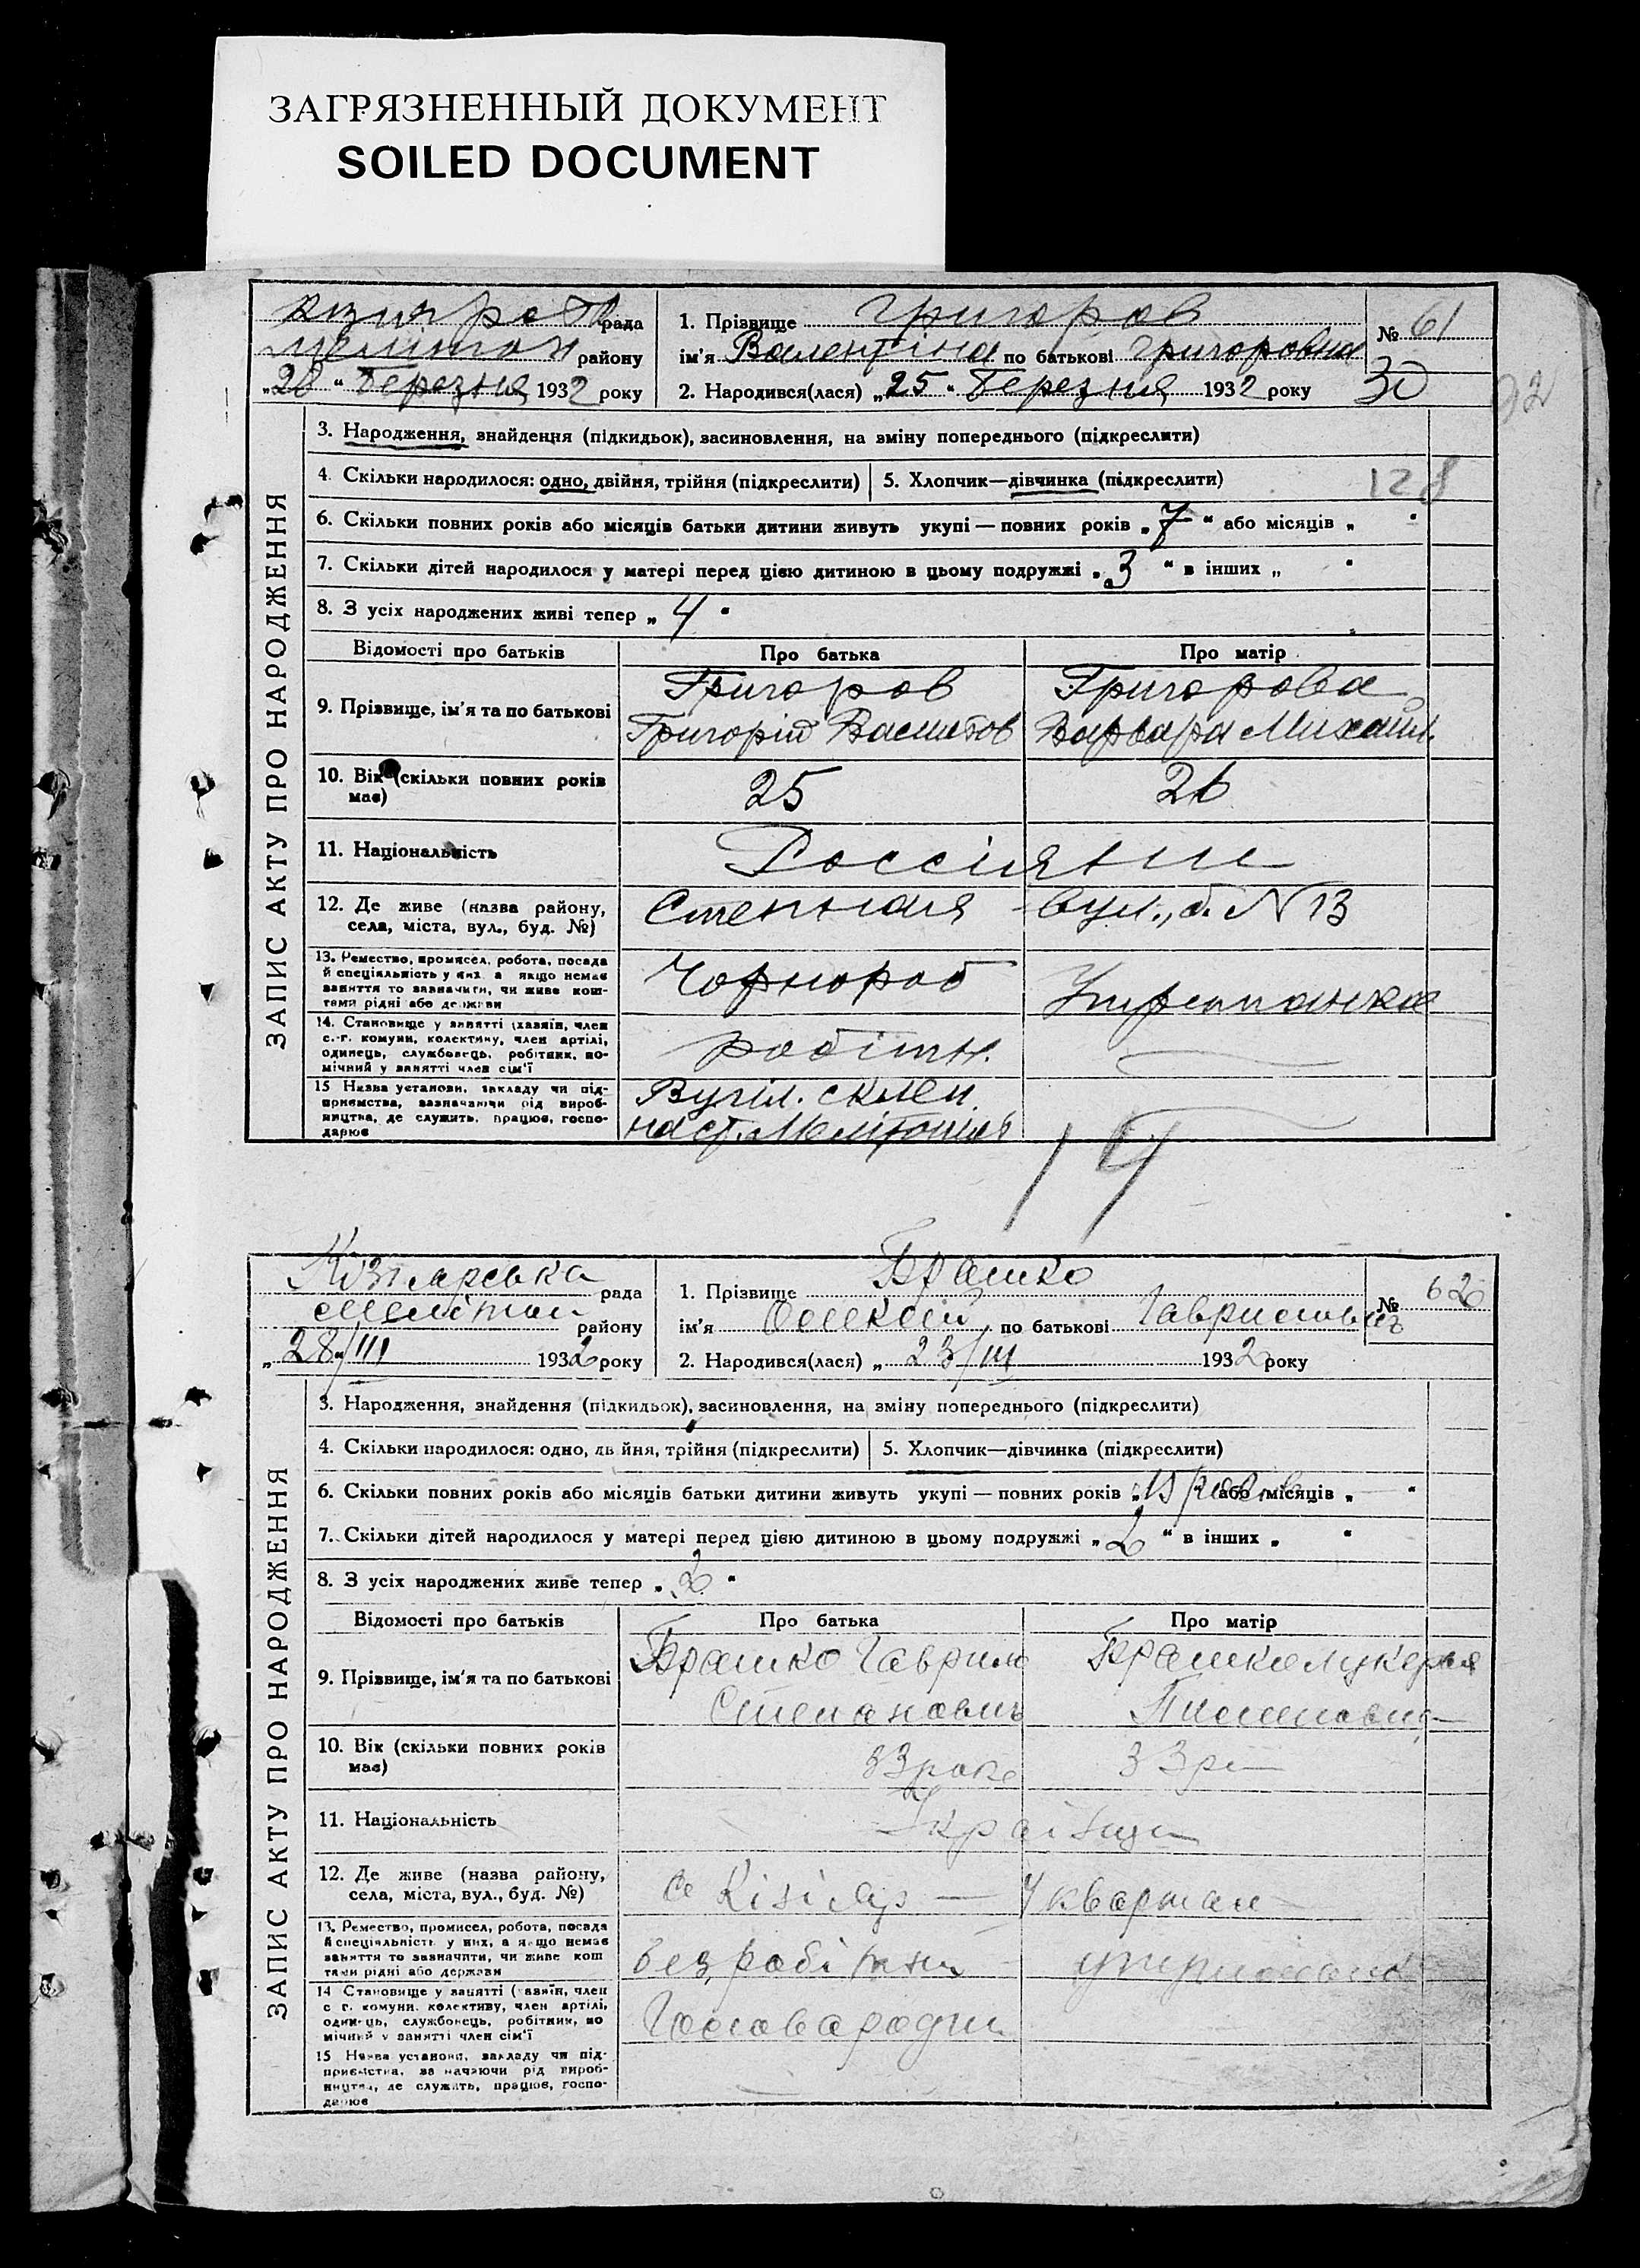 ЗАГРЯЗНЕННЫЙ ДОКУМЕНТ
SOILED DOCUMENT
ЗАПИС АКТУ ПРО НАРОДЖЕННЯ
рада
району
„28“ Березня 1932 року
1. Прізвище Григоров
ім'я Валентіна по батькові Григоровна
2. Народився(лася) „25“ Березня 1932 року
№ 61
30
92
3. Народження, знайдення (підкидьок), засиновлення, на зміну попереднього (підкреслити)
4. Скільки народилося: одно, двійня, трійня (підкреслити) 5. Хлопчик—дівчинка (підкреслити)
128
6. Скільки повних років або місяців батьки дитини живуть укупі — повних років „7“ або місяців „ “
7. Скільки дітей народилося у матері перед цією дитиною в цьому подружжі „3“ в інших „ “
8. З усіх народжених живі тепер „4“
Відомості про батьків Про батька Про матір
9. Прізвище, ім'я та по батькові
Григоров Григорова
Григорій Васильов Варвара Михайл.
10. Вік (скільки повних років має) 25 26
11. Національність Россіяне
12. Де живе (назва району, села, міста, вул., буд. №) Степная вул., д. N 13
13. Ремество, промисел, робота, посада
й спеціальність у них, а якщо немає
заняття то зазначити, чи живе кош-
тами рідні або держави
Чорнороб Утриманка
14. Становище у занятті (хазяїн, член
с.-г. комуни, колективу, член артілі,
одинець, службовець, робітник, по-
мічний у занятті член сім'ї
робітн.
15 Назва установи, закладу чи під-
приємства, зазначаючи рід вироб-
ництва, де служить, працює, госпо-
дарює
Вугіл. склад
на ст. Мелітопіль
14
ЗАПИС АКТУ ПРО НАРОДЖЕННЯ
Кізіярська рада
Меліто́п району
„28/III 1932 року
1. Прізвище Брашко
ім'я Олексій по батькові Гаврилович
2. Народився(лася) „23/III 1932 року
№ 62
3. Народження, знайдення (підкидьок), засиновлення, на зміну попереднього (підкреслити)
4. Скільки народилося: одно, двійня, трійня (підкреслити) 5. Хлопчик—дівчинка (підкреслити)
6. Скільки повних років або місяців батьки дитини живуть укупі — повних років „ років або місяців „—“
7. Скільки дітей народилося у матері перед цією дитиною в цьому подружжі „2“ в інших „ “
8. З усіх народжених живе тепер „2“
Відомості про батьків Про батька Про матір
9. Прізвище, ім'я та по батькові
Брашко Гаврило Брашко Лукерья
Степанович
10. Вік (скільки повних років має) 33 роки 33 р
11. Національність Українці
12. Де живе (назва району, села, міста, вул., буд. №) с Кізіяр — 4 квартал
13. Ремество, промисел, робота, посада
й спеціальність у них, а якщо немає
заняття то зазначити, чи живе кош
тами рідні або держави
безробітний утриманка
14 Становище у занятті (хазяїн, член
с г. комуни, колективу, член артілі,
одинець, службовець, робітник, по
мічний у занятті член сім'ї
15 Назва установи, закладу чи під-
приємства, зазначаючи рід вироб-
ництва, де служить, працює, госпо-
дарює